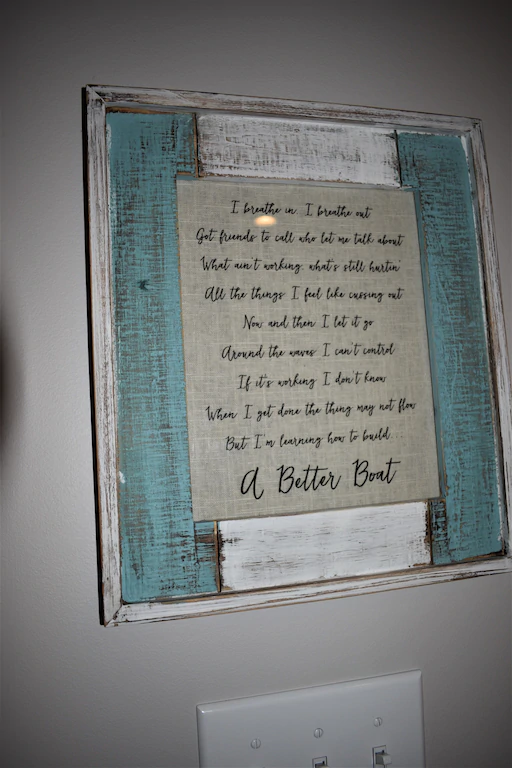 I breathe in, I breathe out
Got friends to call who let me talk about
What ain't working, what's still hurtin'
All the things I feel like cussing out
Now and then I let it go
Around the waves I can't control
If it's working I don't know
When I get done the thing may not flow
But I'm learning how to build...
A Better Boat